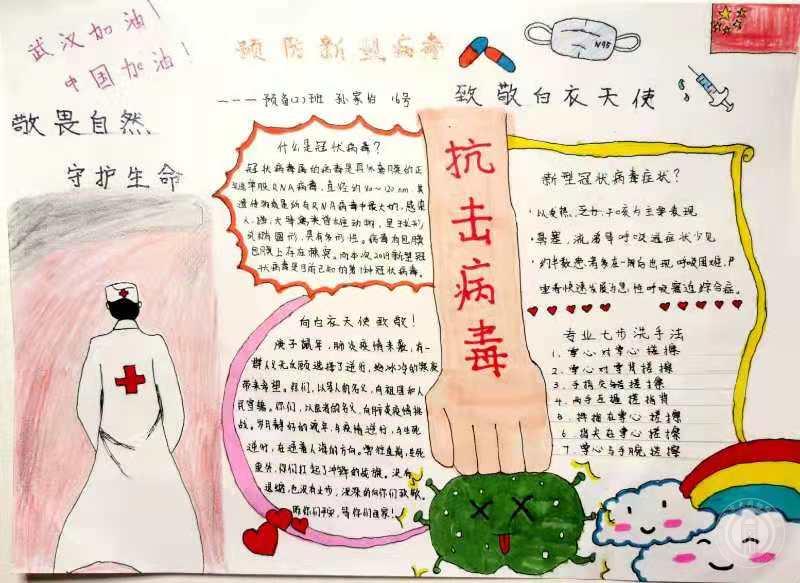 武汉加油!
中国加油!
预防新型病毒
N95
——预备(2)班 孙家 16号
致敬白衣天使
敬畏自然
守护生命
什么是冠状病毒?
冠状病毒属的病毒是具外套膜的正
股RNA病毒,直径约80~120nm,其
遗传物质是所有RNA病毒中最大的,感染
人、猪、犬等脊椎动物,是球形
或椭圆形,具有多形性。病毒有包膜
包膜上存在棘突。向本次2019新型冠
状病毒是目前已知的第7种冠状病毒。
向白衣天使致敬!
庚子鼠年,肺炎疫情来袭,有一
群人义无反顾选择了逆行,给冰冷的寒夜
带来希望。你们,以军人的名义,向祖国和人
民宣誓。你们,以医者的名义,向肺炎疫情挑
战。岁月静好的晚年,与疫情逆行,与生死
逆行,在逆着人海的方向。
你们打起了冲锋的旗。没有
退缩,也没有止步,深深的向你们致敬。
愿你们平安,等你们回家!
抗击病毒
新型冠状病毒症状?
·以发热、乏力、干咳为主要表现
·鼻塞,流涕等呼吸道症状少见
·约半数患者多在一周后出现呼吸困难,严
重者快速发展为急性呼吸窘迫综合症。
专业七步洗手法
1. 掌心对掌心搓擦
2. 掌心对掌背搓擦
3. 手指交错搓擦
4. 两手互握搓指背
5. 拇指在掌心搓擦
6. 指尖在掌心搓擦
7. 掌心与手腕搓擦